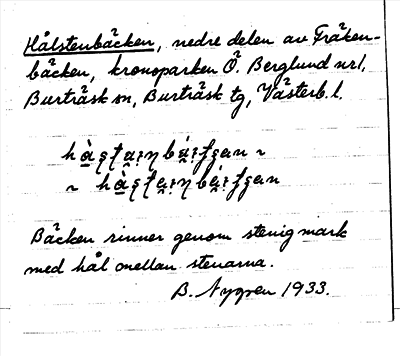 Hålstenbäcken, nedre delen av Fräken-
bäcken, kronoparken Ö. Berglund nr 1,
Burträsk sn, Burträsk tg, Västerb. l.
Bäcken rinner genom stenig mark
med hål mellan stenarna.
B. Nygren 1933.